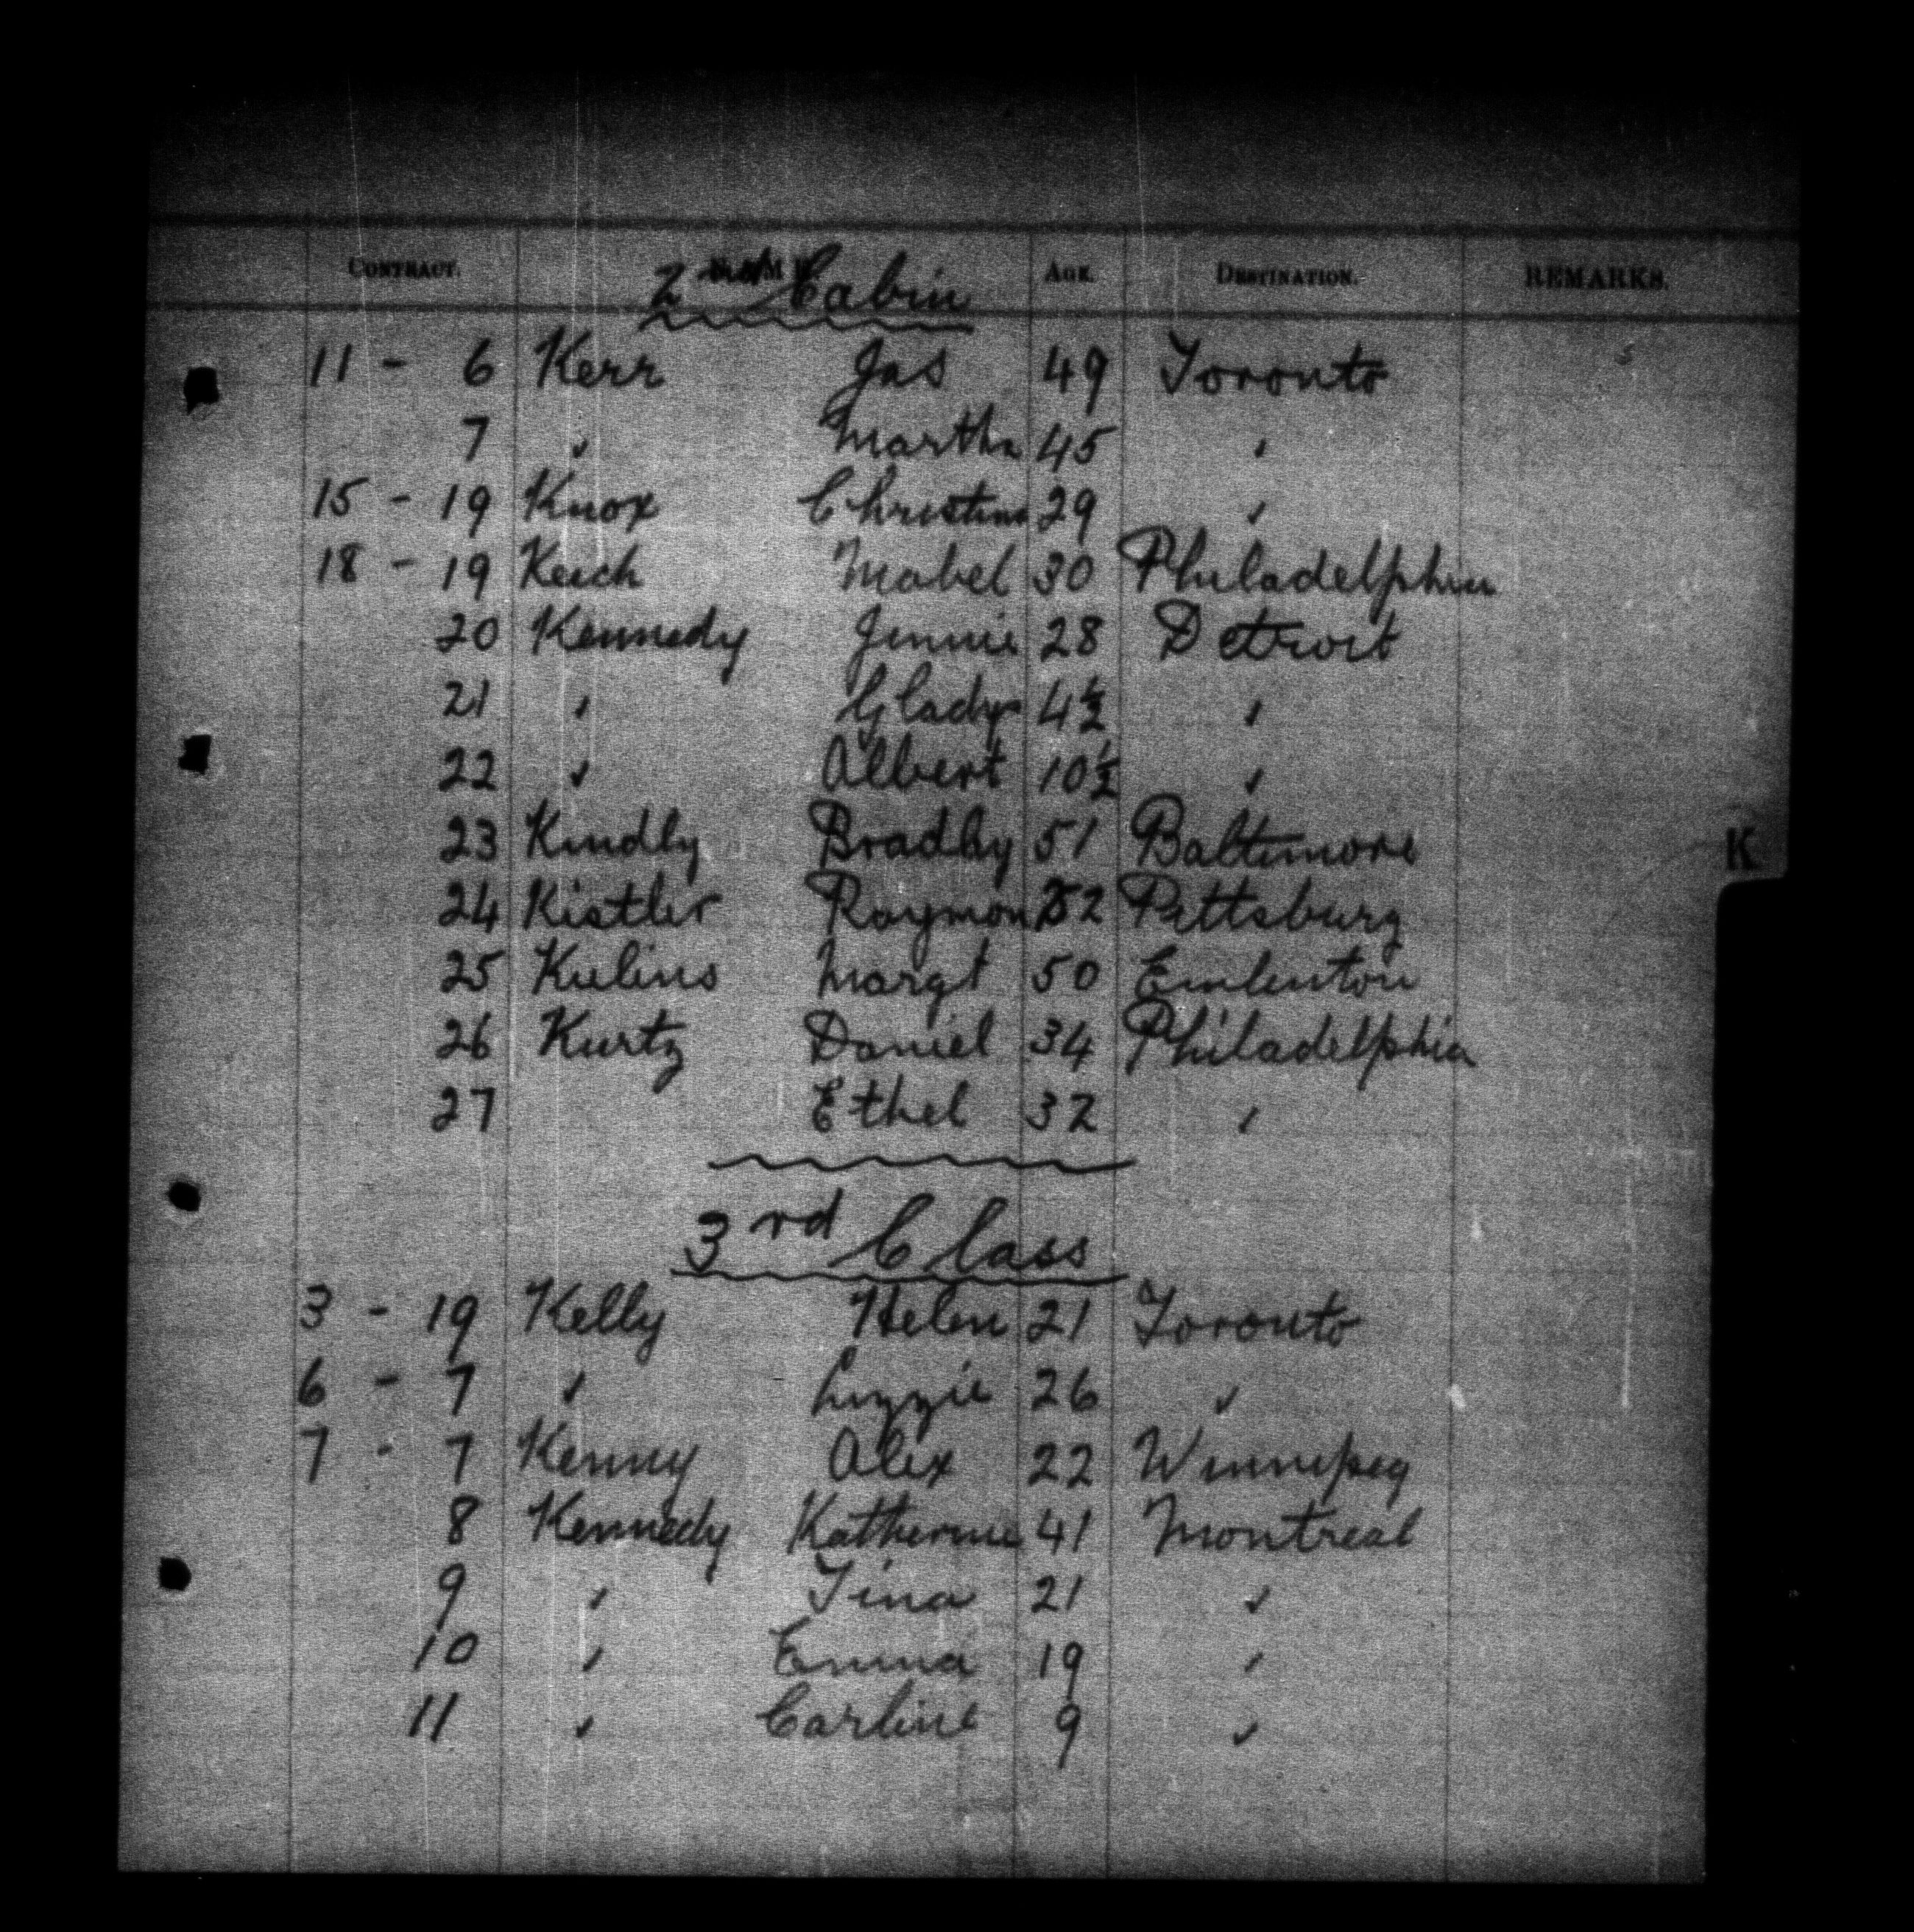 CONTRACT. NAME AGE. DESTINATION. REMARKS.
2nd Cabin
11 - 6 Kerr Jas 49 Toronto
7 " Martha 45 "
15 - 19 Knox Christina 29 "
18 - 19 Keich Mabel 30 Philadelphia
20 Kennedy Jennie 28 Detroit
21 " Gladys 4½ "
22 " Albert 10½ "
23 Kindly Bradby 51 Baltimore
K
24 Kistler Raymond 52 Pittsburg
25 Margt 50 Emlenton
26 Kurtz Daniel 34 Philadelphia
27 Ethel 32 "
3rd Class
3 - 19 Kelly Helen 21 Toronto
6 - 7 " Lizzie 26 "
7 - 7 Kenny Alex 22 Winnipeg
8 Kennedy Katherine 41 Montreal
9 " Tina 21 "
10 " Emma 19 "
11 " Carline 9 "